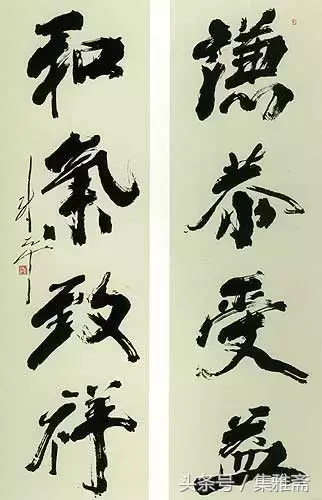 謙恭受益
和氣致祥
头条号 / 集雅斋